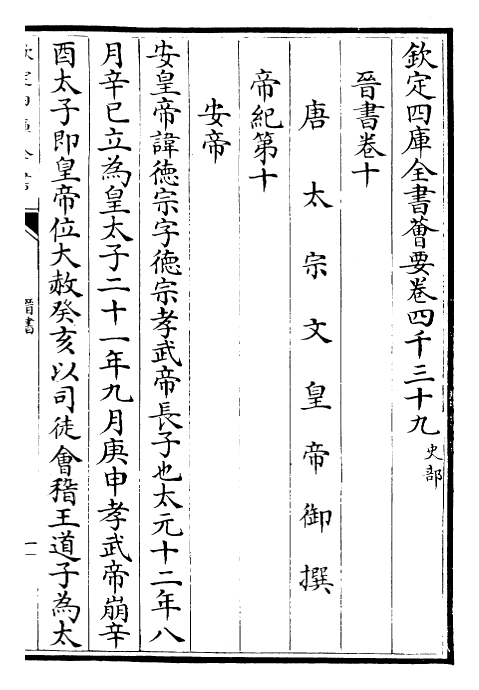 欽定四庫全書薈要卷四千三十九 史部
晉書卷十
唐太宗文皇帝御撰
帝紀第十
安帝
安皇帝諱德宗字德宗孝武帝長子也太元十二年八
月辛巳立為皇太子二十一年九月庚申孝武帝崩辛
酉太子即皇帝位大赦癸亥以司徒會稽王道子為太
晉書